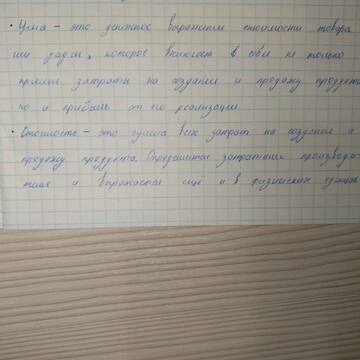 • Цена – это денежное выражение стоимости товара
или задач, которое включает в себя не только
прямые затраты на создание и продажу продукта
но и прибыль от его реализации.
• Стоимость – это сумма всех затрат на создание и
продажу продукта. Определяется затратами производи-
теля и выражается ещё и в физических